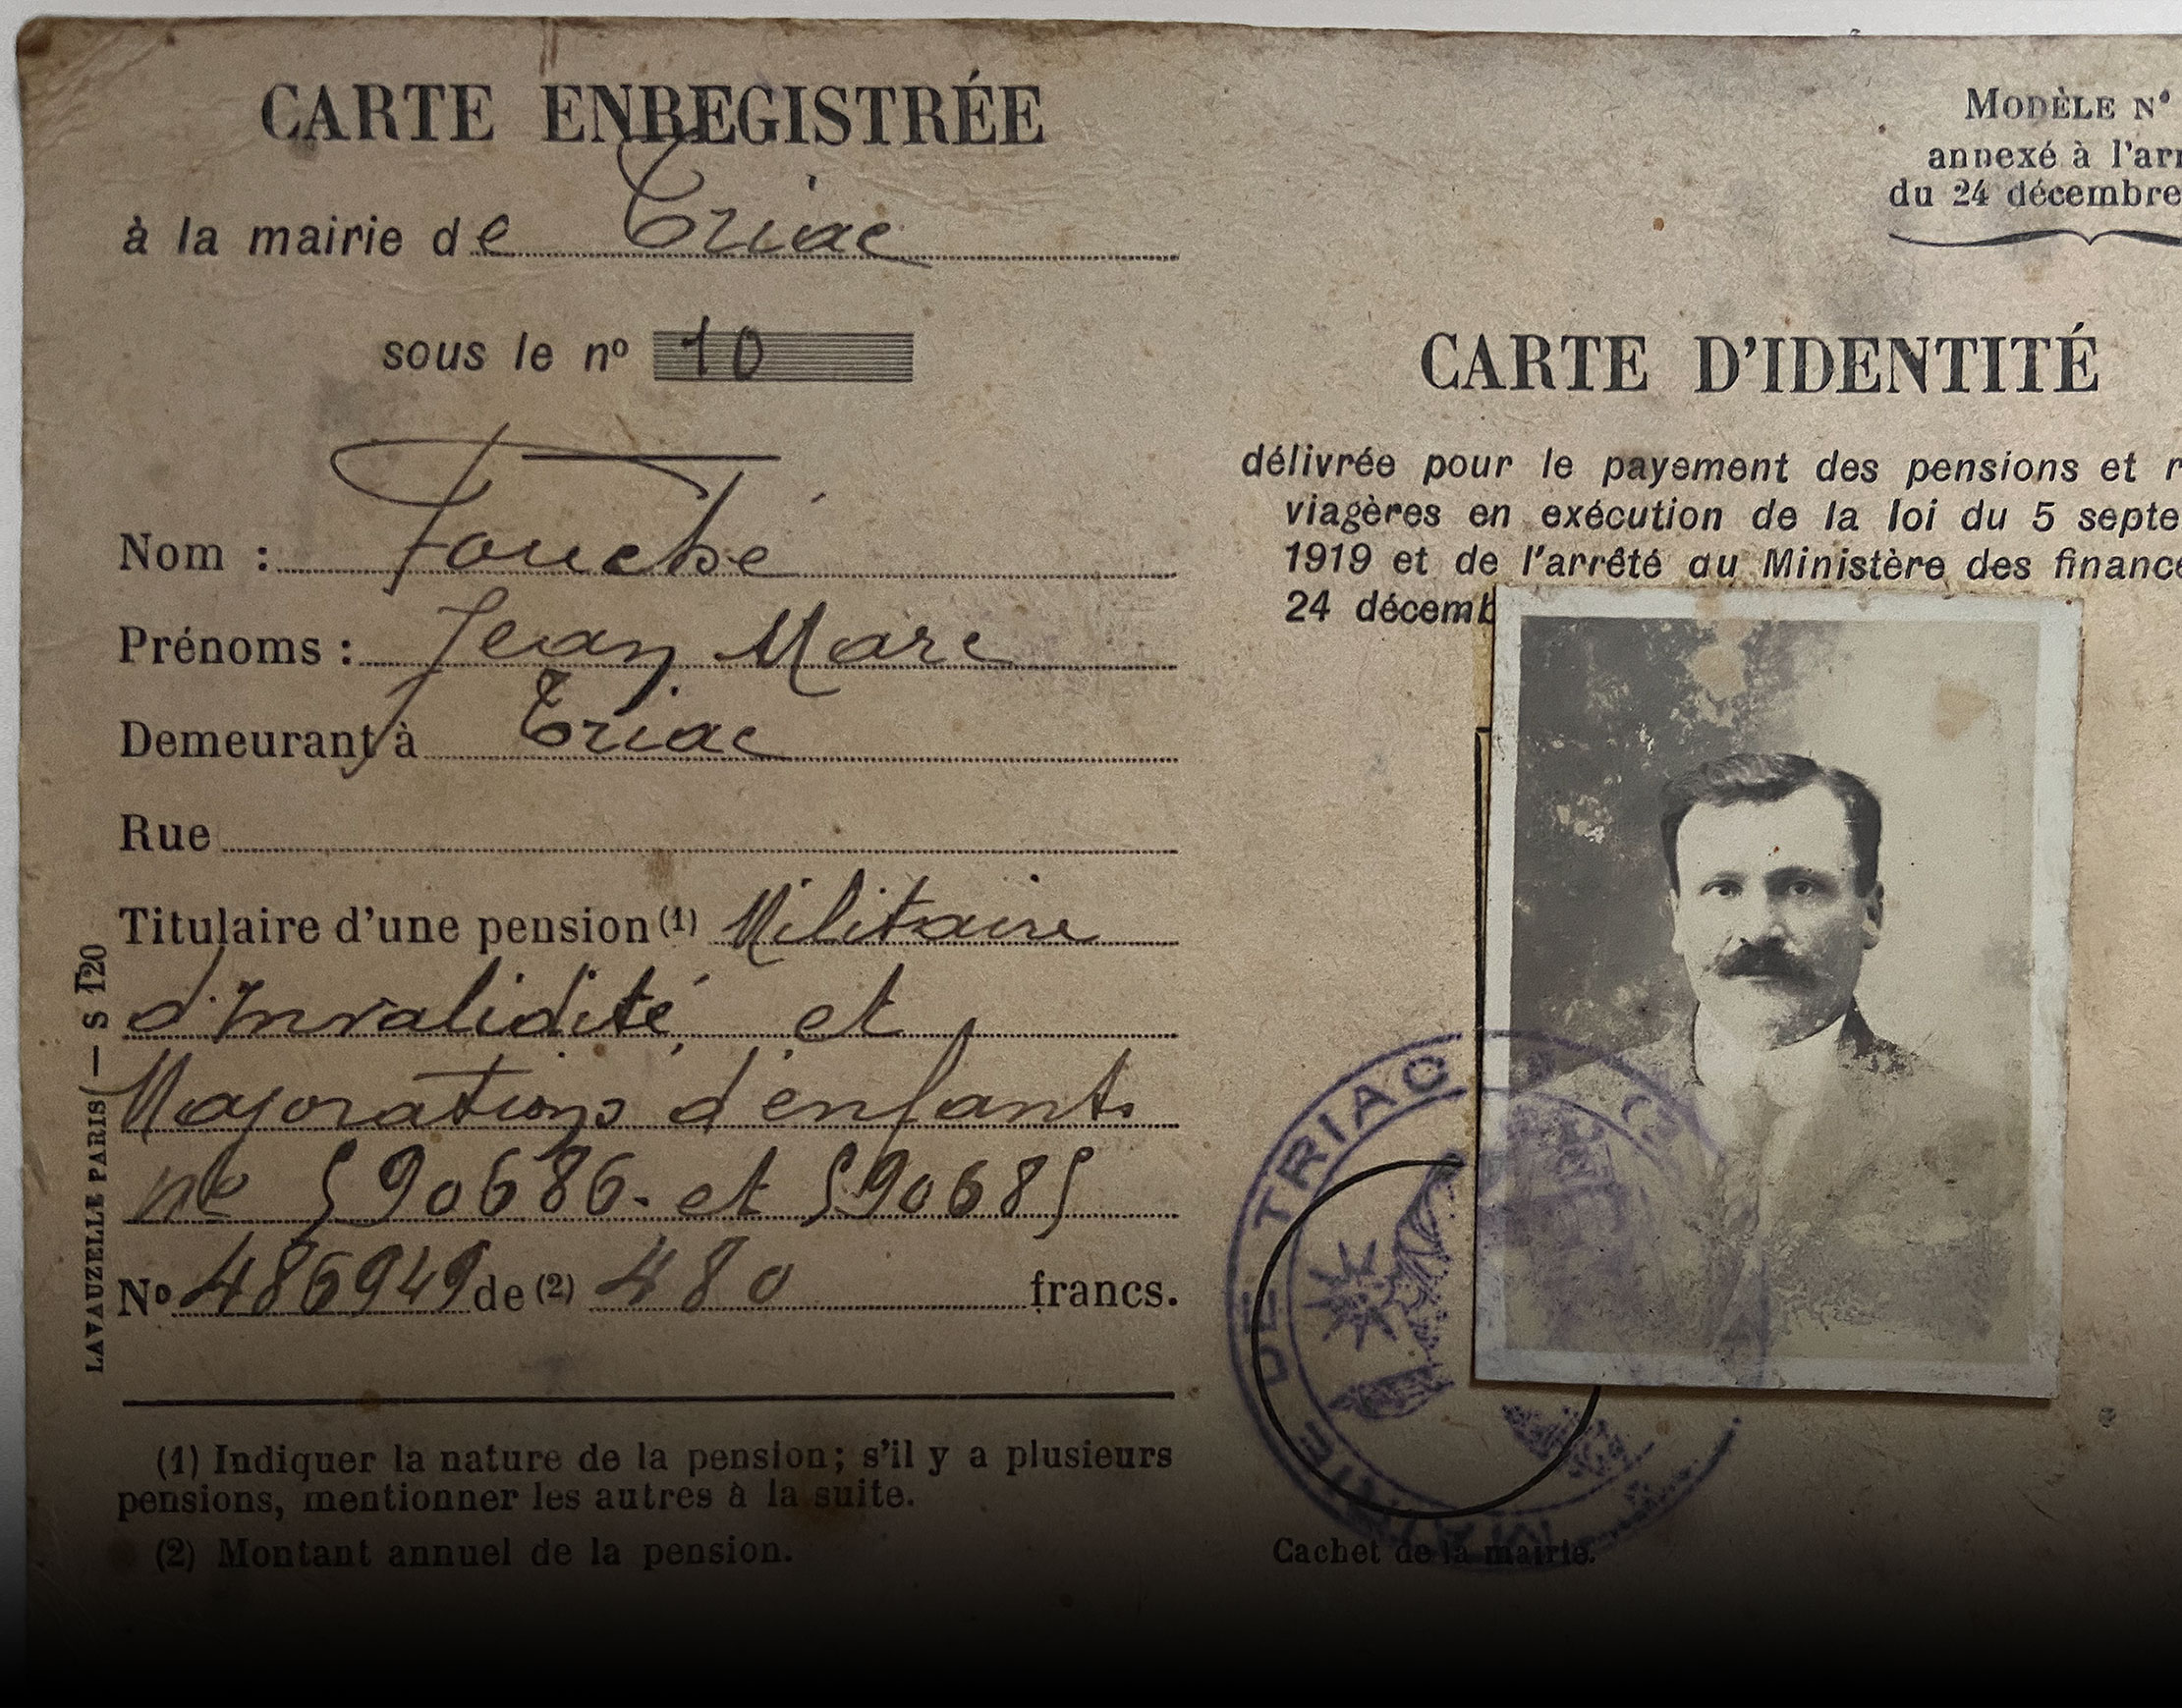 CARTE ENREGISTRÉE
à la mairie de Triac
sous le nº 10
Nom : Fouché
Prénoms : Jean Marc
Demeurant à Triac
Rue
Titulaire d'une pension (1) Militaire
d'Invalidité et
Majorations d'enfants
nº 590686 - et 590685
Nº 486949 de (2) 480 francs.
(1) Indiquer la nature de la pension; s'il y a plusieurs
pensions, mentionner les autres à la suite.
(2) Montant annuel de la pension.
LAVAUZELLE PARIS — S 120
MODÈLE Nº
annexé à l'arr
du 24 décembre
CARTE D'IDENTITÉ
délivrée pour le payement des pensions et r
viagères en exécution de la loi du 5 septe
1919 et de l'arrêté du Ministère des finance
24 décemb
MAIRIE DE TRIAC
Cachet de la mairie.